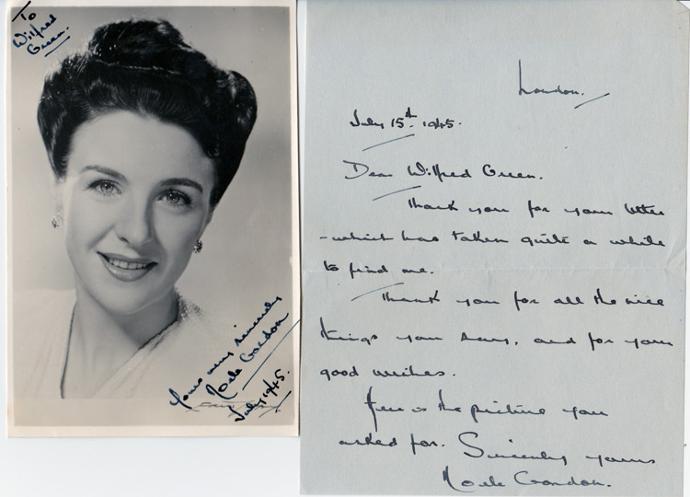 To
Wilfred
Green.
Yours very sincerely
Noele Gordon
July 1945.
London.
July 15th 1945.
Dear Wilfred Green.
Thank you for your letter
- which has taken quite a while
to find me.
Thank you for all the nice
things you say, and for your
good wishes.
Here is the picture you
asked for. Sincerely yours
Noele Gordon.